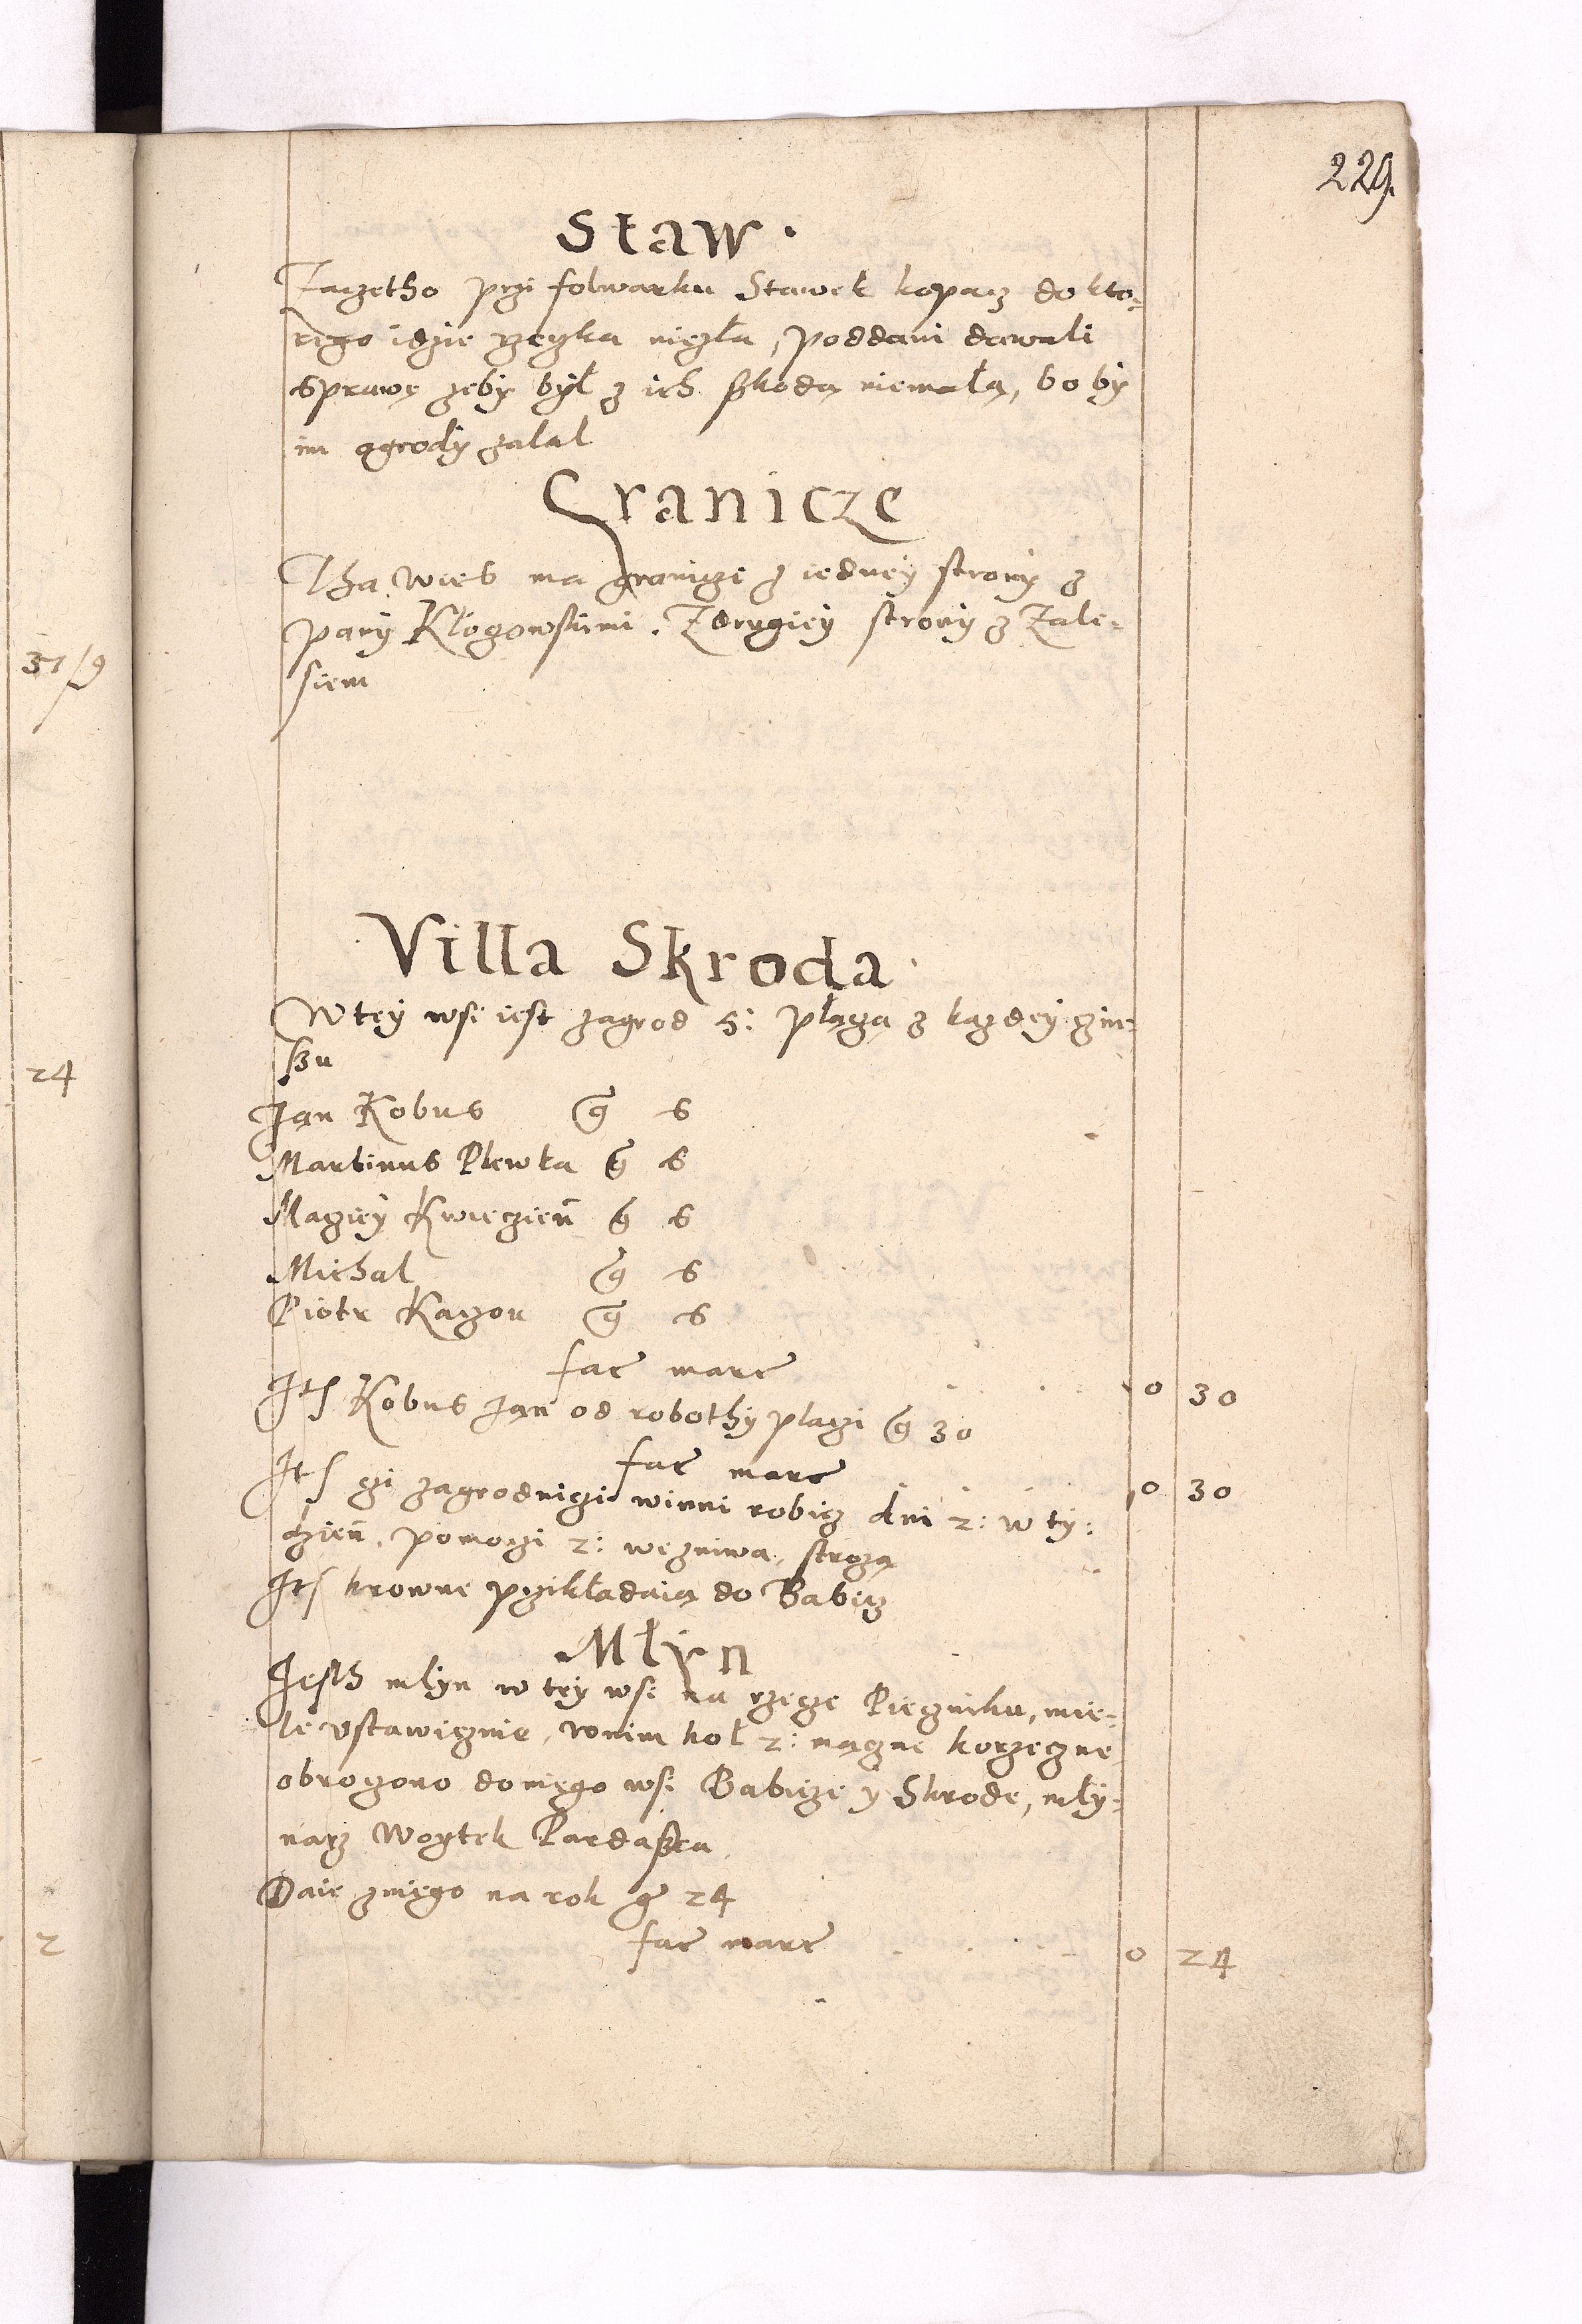 229.
Staw.
Zaczetho przi folwarku Stawek kopacz do kto=
rego idzie rzeczka niezła, poddani dawali
sprawę zeby był z ich szkodą niemałą, bo by
im ogrody zalal
Granicze
Tha wies ma granicze z iedney strony z
pany Kłogowskimi. Z drugiey strony z Zale=
siem
31/9
Villa Skroda.
W tey wsi iest zagrod 5: płaczą z kazdey czin=
szu
24
Jan Kobus g 6
Martinus Plewka g 6
Maciey Kwieczien g 6
Michal g 6
Piotr Kaczor g 6
fac marc 0 30
It Kobus Jan od robothy placzi g 30
fac marc 0 30
It czi zagrodniczi winni robicz dni 2: w ty:
dzien, pomoczi 2: we zniwa, strozą
It krowne przikładaią do Babicz
Młyn
Jesth mlyn w tey wsi na rzecze Pieczniku, mie=
le ustawicznie, w nim kol 2: mączne korzeczne
obroczono do niego wsi Babicze y Skrode, mły=
narz Woytek Pardaszka
Daie z niego na rok g 24
2
fac marc 0 24